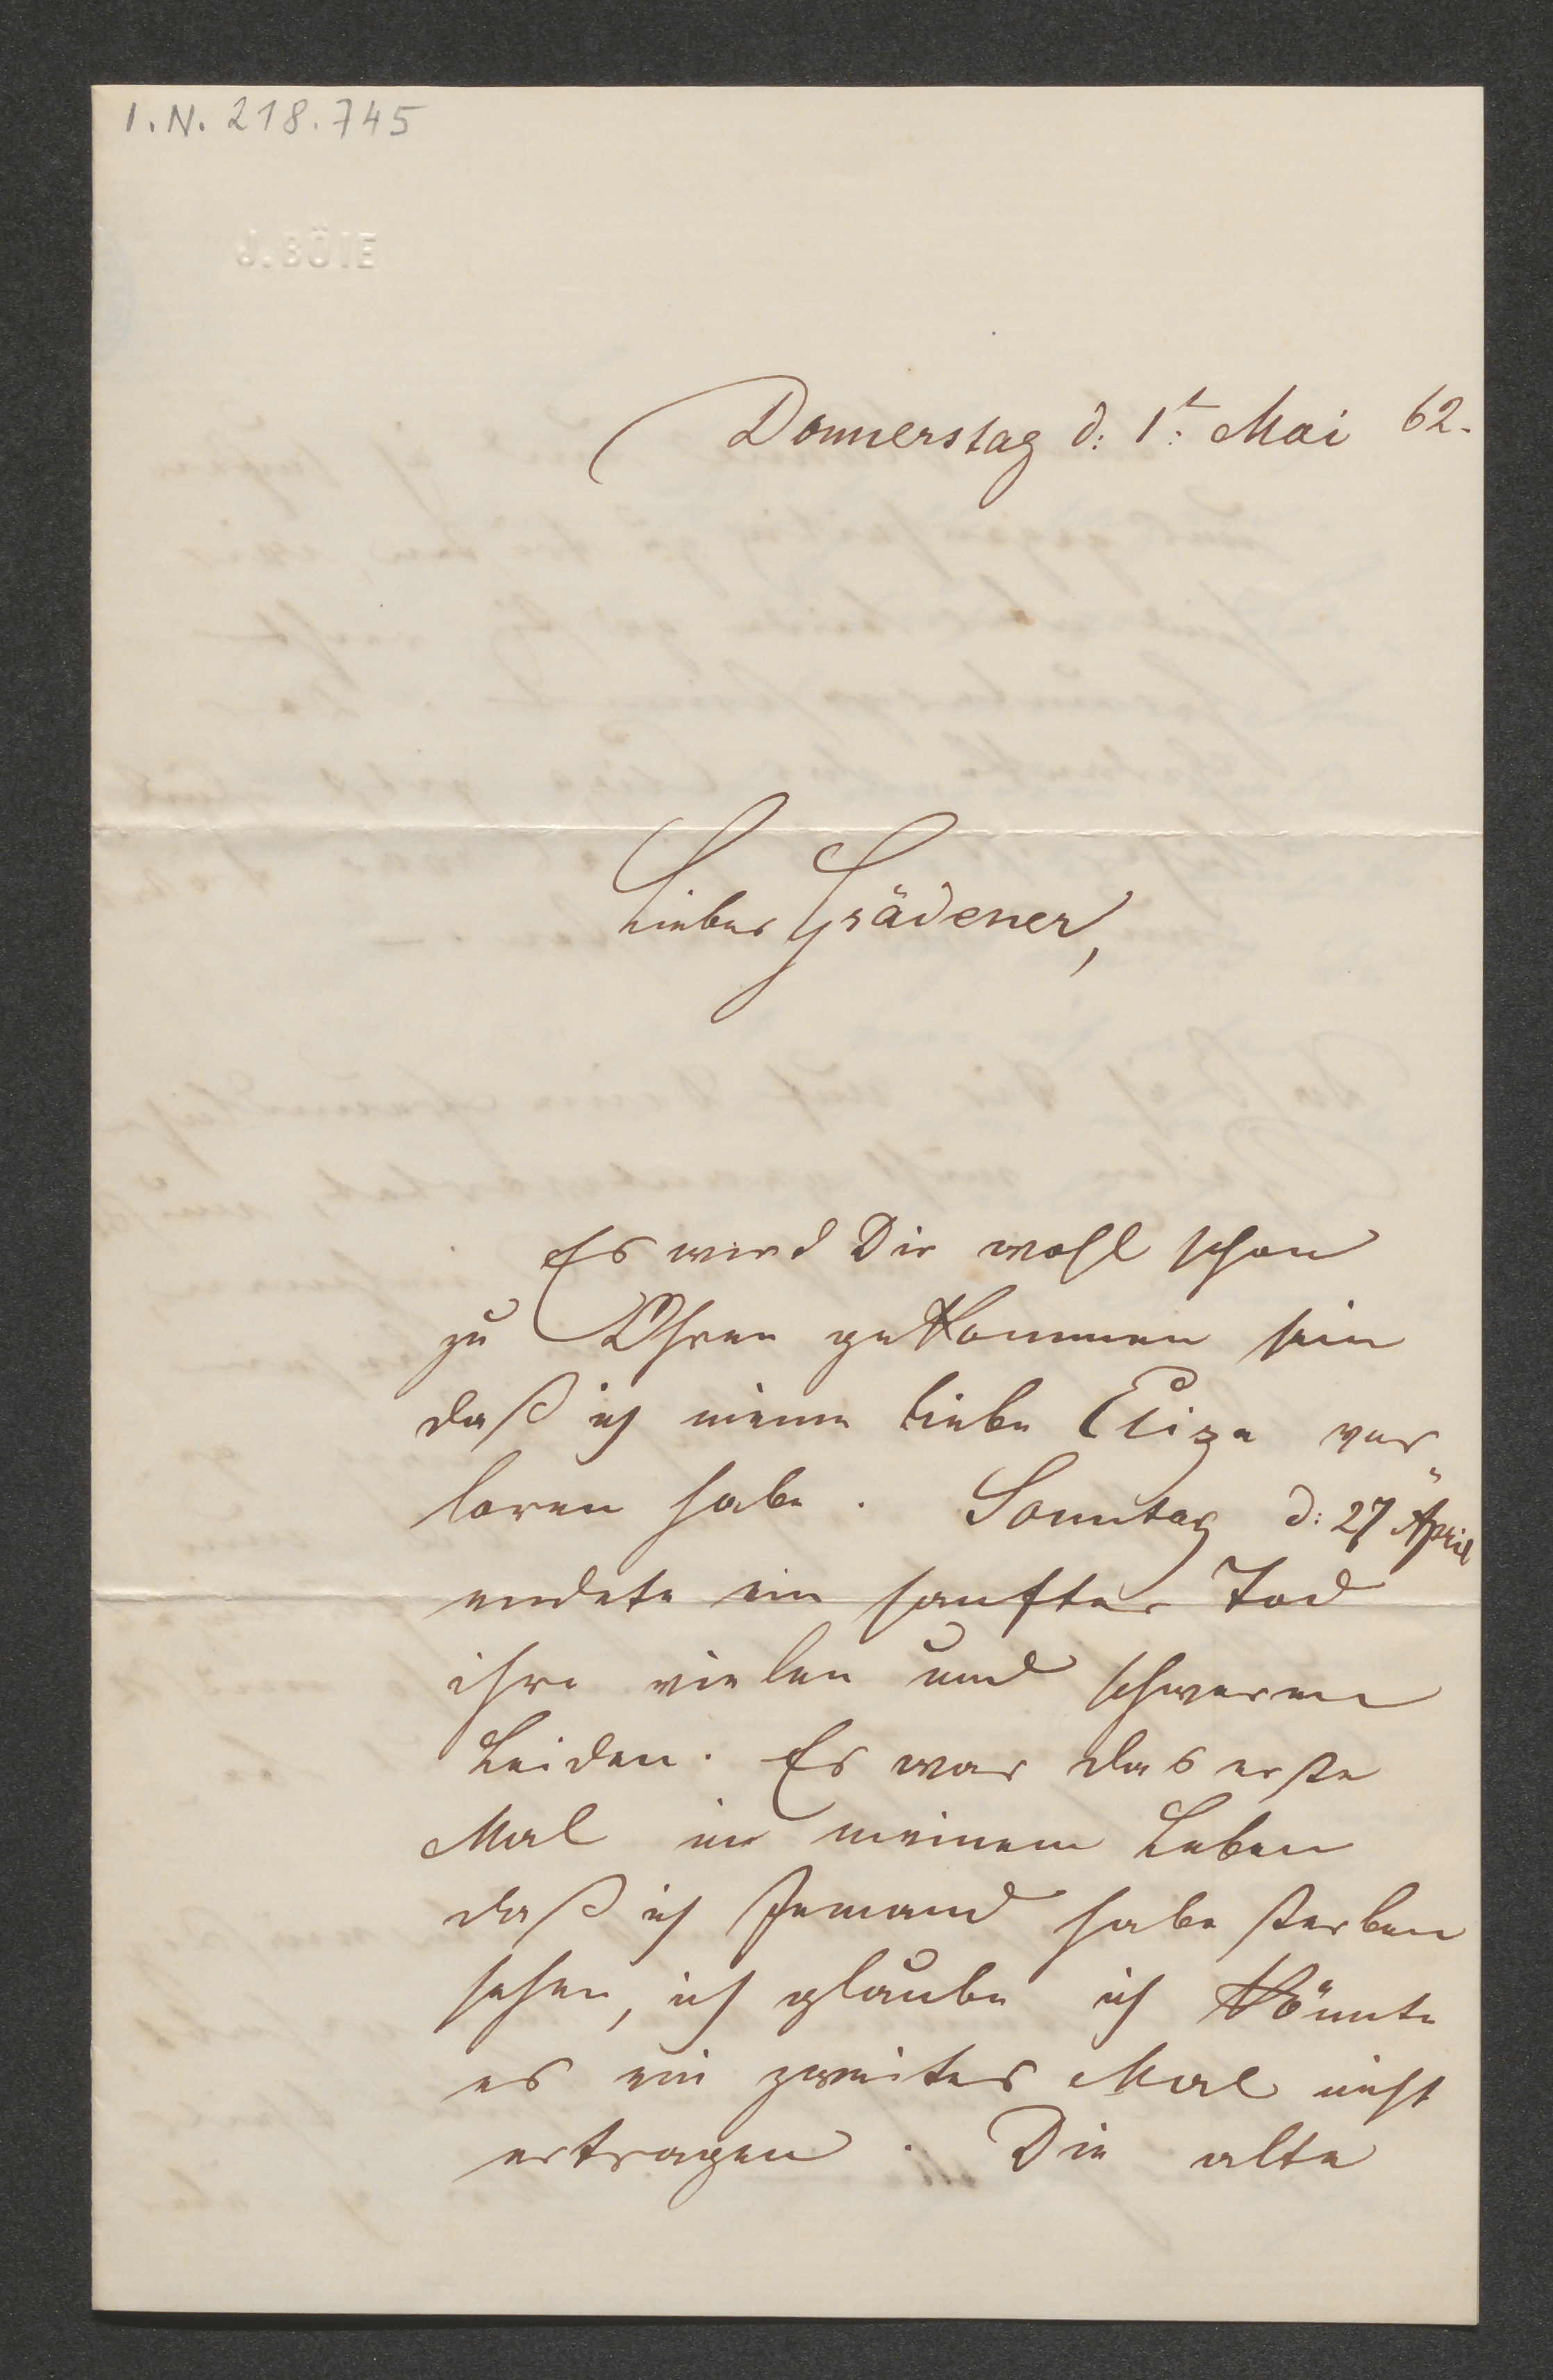 I.N. 218.745
J. BÖIE
Donnerstag d: 1t: Mai 62.
Lieber Grädener,
Es wird Dir wohl schon
zu Ohren gekommen sein
daß ich meine liebe Eliza ver„
loren habe. Sonntag d: 27 April
endete ein sanfter Tod
ihre vielen und schweren
Leiden. Es war das erste
Mal in meinem Leben
daß ich Jemand habe sterben
sehen, ich glaube ich könnte
es ein zweites Mal nicht
ertragen. Die alte